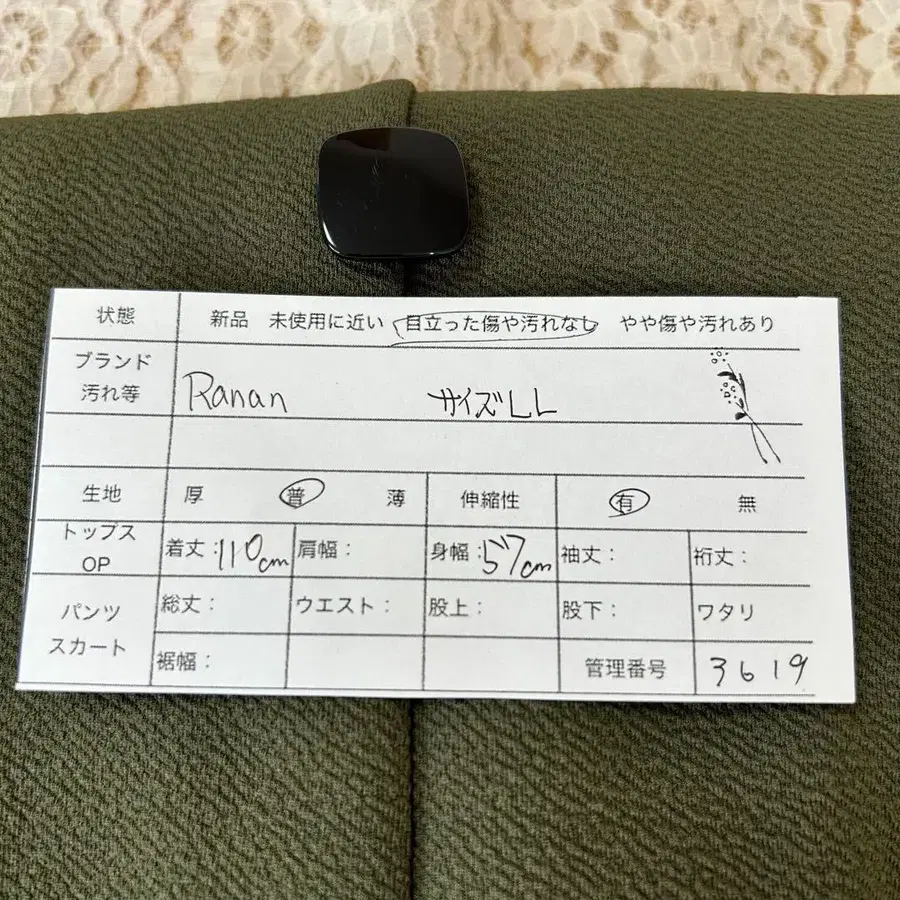 状態 新品 未使用に近い 目立った傷や汚れなし やや傷や汚れあり
ブランド
汚れ等 Ranan サイズLL
生地 厚 普 薄 伸縮性 有 無
トップス
OP 着丈：110cm 肩幅： 身幅：57cm 袖丈： 裄丈：
パンツ
スカート 総丈： ウエスト： 股上： 股下： ワタリ
裾幅： 管理番号 3619